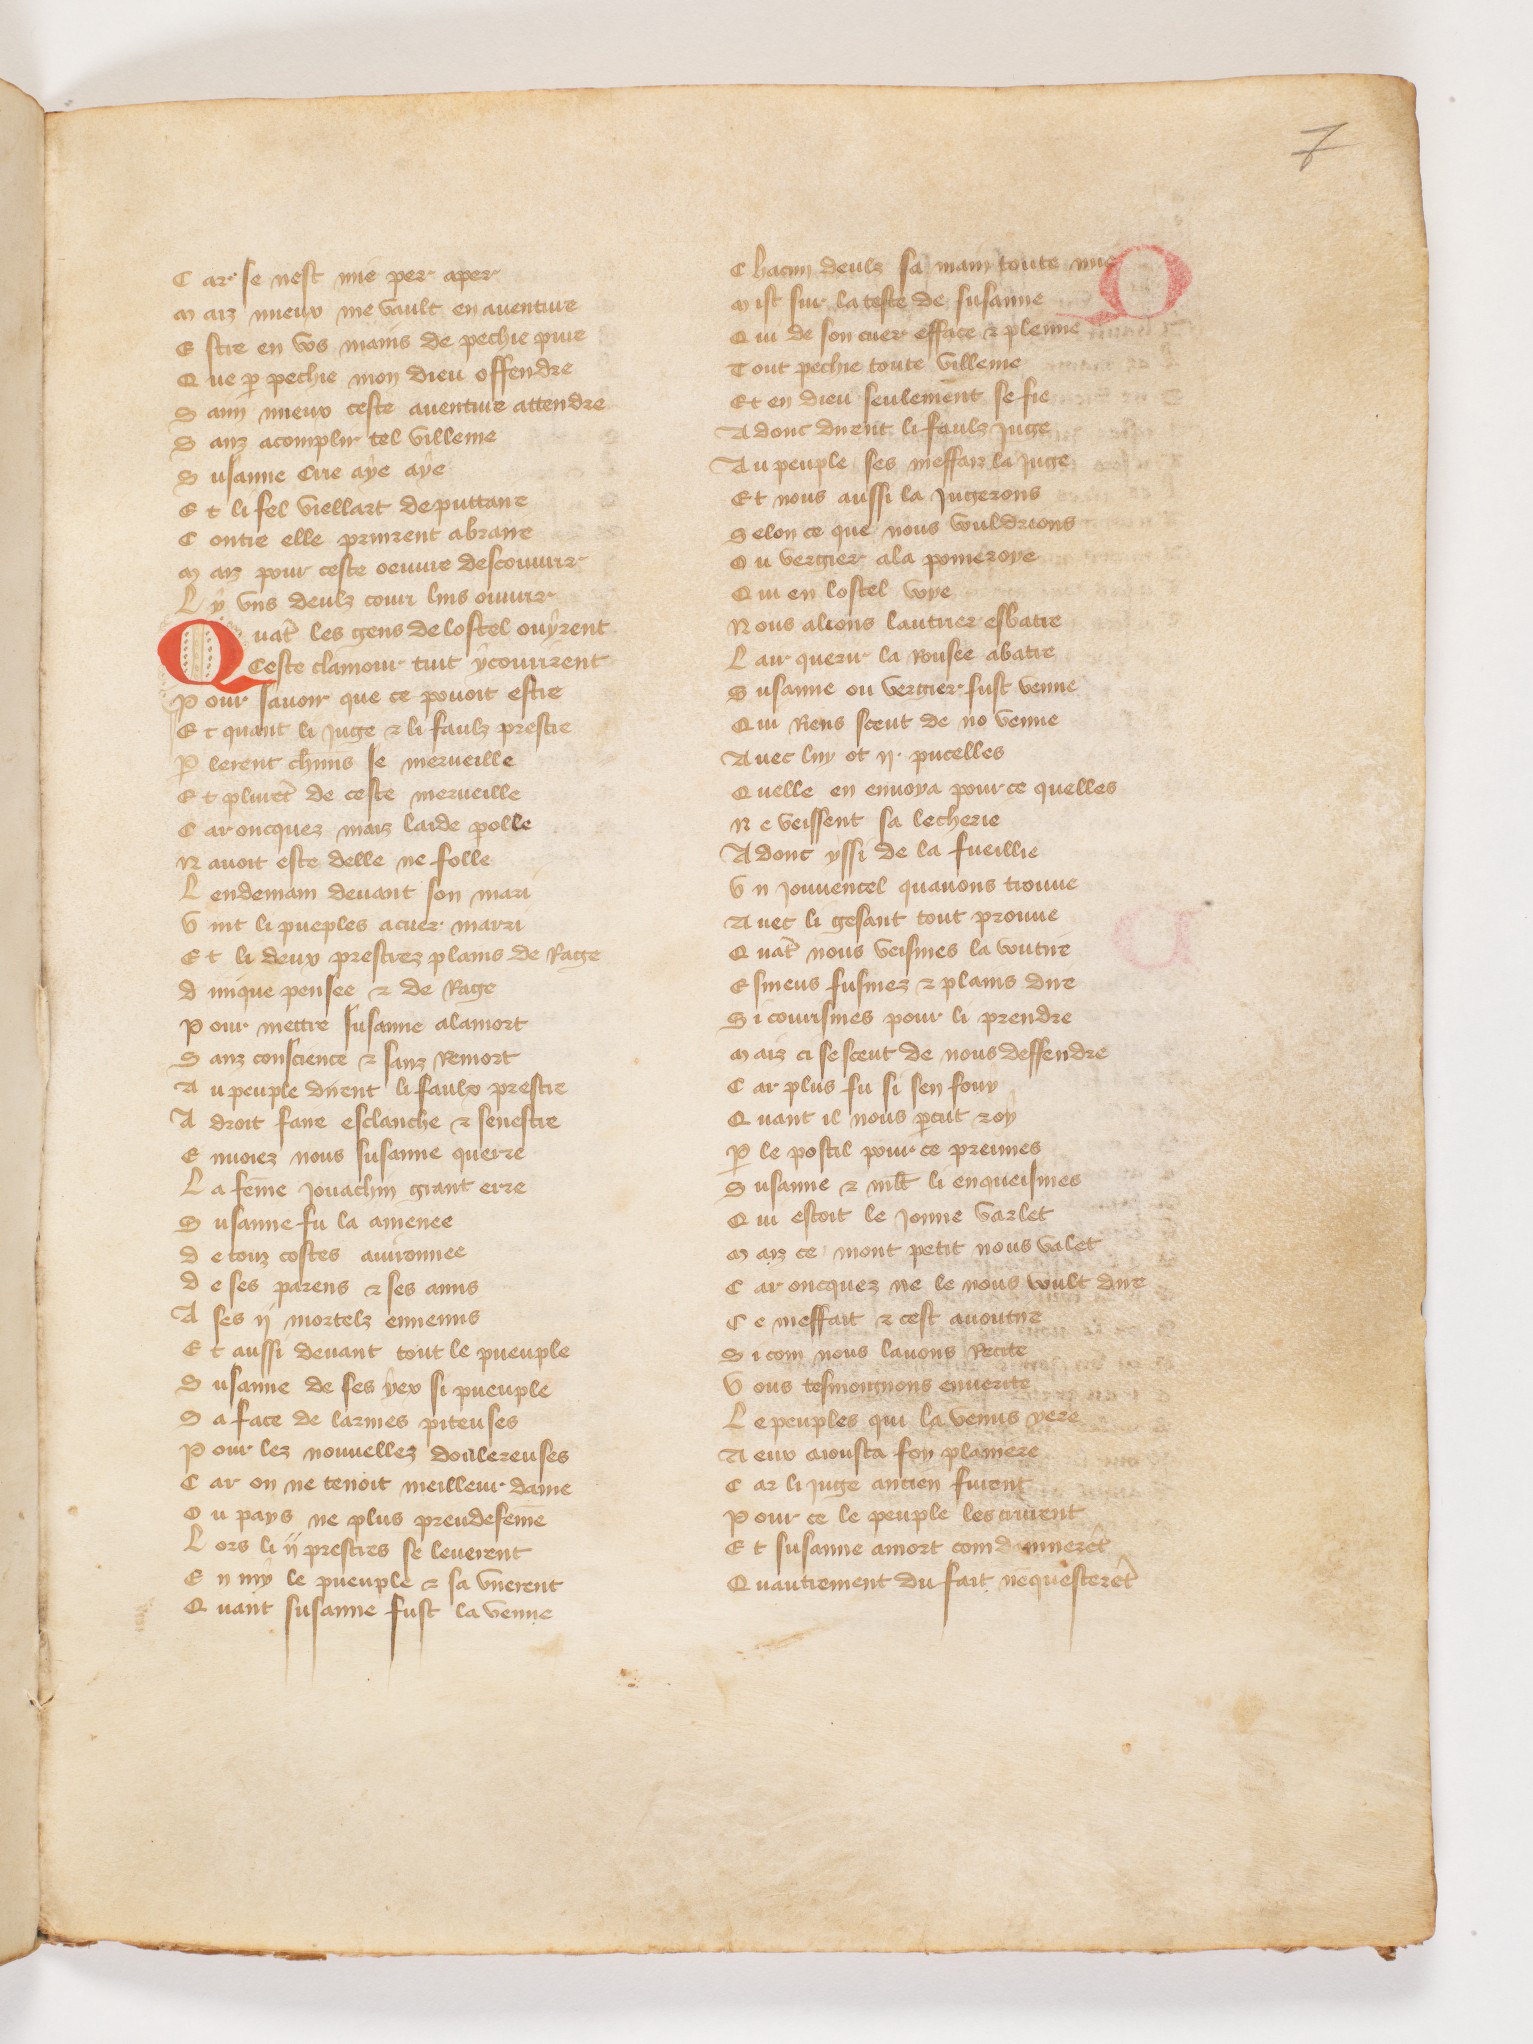 7
Car se nest mie per aper
Maiz mieux me vault en auenture
Estre en vos mains de pechie pure
Que ꝑ pechie mon dieu offendre
Jaim mieux ceste auenture attendre
Sanz acomplir tel villenie
Susanne crie aÿe aÿe
Et li fel viellart deputtaire
Contre elle prinrent abraire
Maiz pour ceste oeuure descouurir
Lÿ vns deulz couri luis ouurir
Quãt les gens de lostel ouÿrent
Ceste clamour tuit ÿcourirent
Pour sauoir que ce pouoit estre
Et quant li juge ⁊ li faulz prestre
Ꝑlerent chũns se merueille
Et plurẽt de ceste merueille
Car oncquez maiz laide ꝑolle
Nauoit este delle ne folle
Lendemain deuant son mari
Vint li pueples acuer marri
Et li deux prestrez plains de Rage
dinique pensee ⁊ de Rage
Pour mettre susanne alamort
Sanz conscience ⁊ sanz Remort
Au peuple dirent li faulx prestre
A droit faire esclanche ⁊ senestre
Enuoiez nous susanne querre
La fẽme jouachin grant erre
Susanne fu la amenee
de touz costes auironnee
de ses parens ⁊ ses amis
A ses ij mortelz ennemis
Et aussi deuant tout le pueuple
Susanne de ses ÿex si pueuple
Sa face de larmes piteuses
Pour lez nouuellez doulereuses
Car on ne tenoit meilleur dame
Ou pays ne plus preudefẽme
Lors li ij prestres se leuerent
En mÿ le pueuple ⁊ sa vnerent
Quant susanne fust la venue
Chacun deulz sa main toute nue
Mist sur la teste de susanne
Qui de son cuer efface ⁊ plenne
Tout pechie toute villenie
Et en dieu seulement se fie
Adonc dirent li faulz juge
Au peuple ses meffaiz la juge
Et nous aussi la jugerons
Selon ce que nous vouldrions
Ou vergier ala pomeroye
Qui en lostel voye
Nous alions lautrier esbatre
Lair querir la Rousee abatre
Susanne ou vergier fust venue
Qui Riens sceut de no venue
Auec luy ot ij. pucelles
Quelle en enuoya pour ce quelles
Ne veissent sa lecherie
Adonc yssi de la fueillie
Vn jouuencel quauons trouue
Auec li gesant tout prouue
Quãt nous veismes la voutrie
Esmeus fusmez ⁊ plains dire
Si courismes pour li prendre
Maiz ci se sceut de nous deffendre
Car plus fu si sen fouÿ
Quant il nous ꝑcut ⁊ oÿ
Ꝑ le postil pour ce preinmes
Susanne ⁊ mlt li enqueismes
Qui estoit le jonne varlet
Maiz ce mont petit nous valet
Car oncquez ne le nous voult dire
Ce meffait ⁊ cest auoutrie
Si com nous lauons Recite
Vous tesmoignons enuerite
Le peuples qui la venus yere
A eux aiousta foy plainere
Car li juge ancien furent
Pour ce le peuple les crurent
Et susanne amort comdamnerẽt
Quautrement du fait nequesterẽt